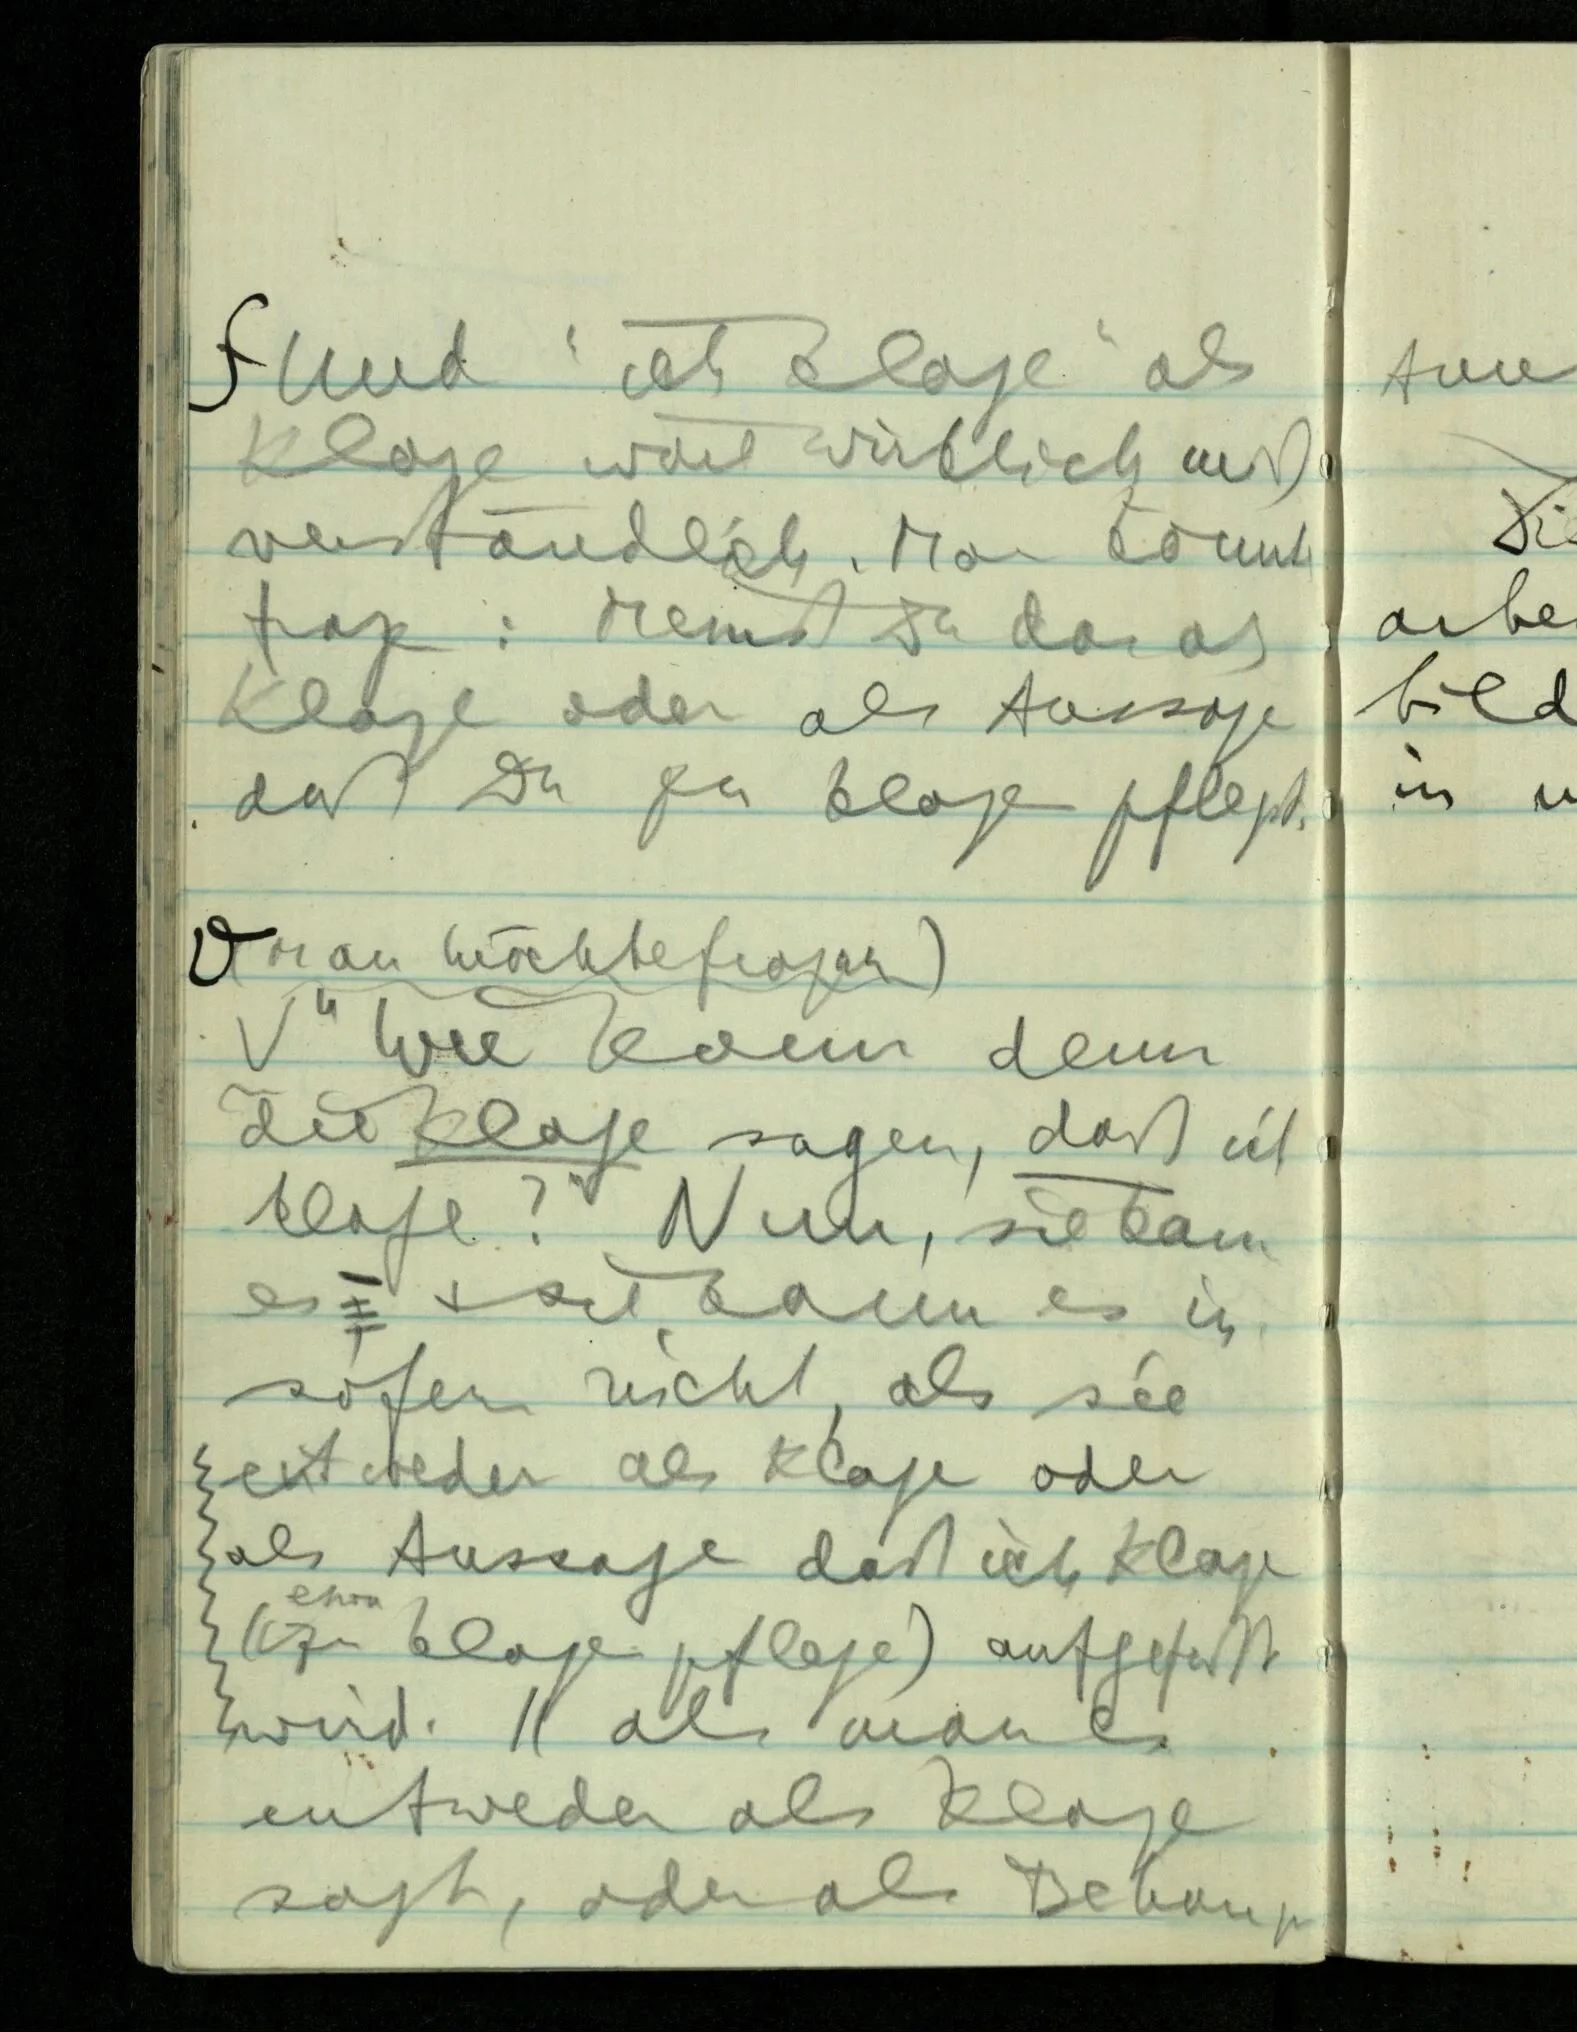 ∫ Und "ich klage" als
Klage wäre wirklich miß
verständlich. Man könnte
frage: Meinst Du das als
Klage oder als Aussage
daß Du zu klage pflegst.
(man möchte fragen)
V " Wie kann denn
die Klage sagen, daß ich
klage?" Nun, sie kann
es & sie kann es in
sofern nicht, als sie
entweder als Klage oder
als Aussage daß ich klage
etwa
(zu klage pflege) aufgefaßt
wird. || als man es
entweder als Klage
sagt, oder als Behaup
Die
arbe
bild
in